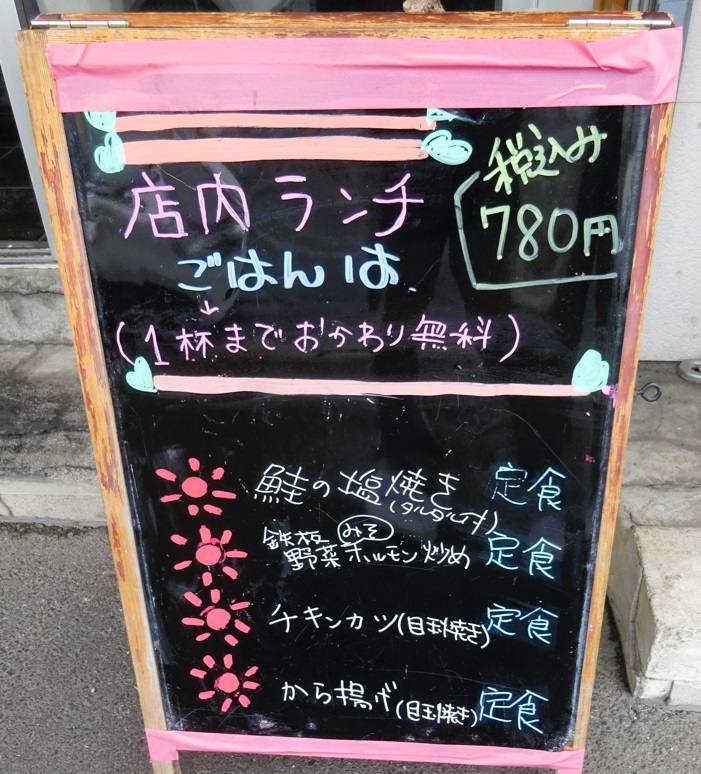 税込み
780円
店内ランチ
ごはんは
(1杯までおかわり無料)
鮭の塩焼き 定食
(タルタル付)
鉄板 みそ
野菜ホルモン炒め 定食
チキンカツ(目玉焼き) 定食
から揚げ(目玉焼き) 定食